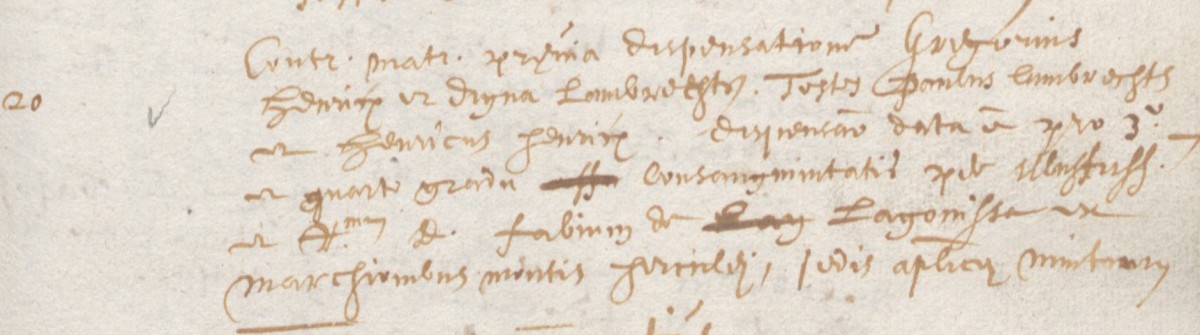 Contr. matr. prævia dispensatione Gregorius
20 Henrick et Digna Lambrechts. Testes Paulus Lambrechts
et Henricus Henrick. dispensaõ data ẽ pro 3º.
et quarto gradu consanguinitatis per Illustriss.
et R.mum D. Fabium de Lagonissa ex
marchionibus montis Herculei, sedis aplicæ nuntium